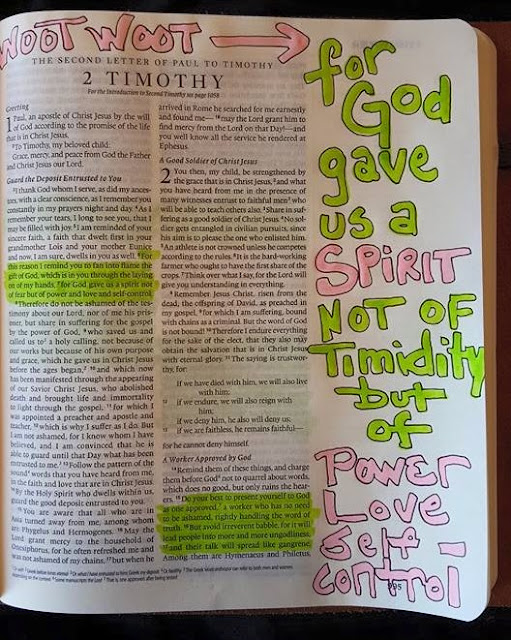 WOOT WOOT →
THE SECOND LETTER OF PAUL TO TIMOTHY
2 TIMOTHY
For the Introduction to Second Timothy see page 1058
Greeting
1 Paul, an apostle of Christ Jesus by the will
of God according to the promise of the life
that is in Christ Jesus,
2 To Timothy, my beloved child:
Grace, mercy, and peace from God the Father
and Christ Jesus our Lord.
Guard the Deposit Entrusted to You
3 I thank God whom I serve, as did my ances-
tors, with a clear conscience, as I remember you
constantly in my prayers night and day. 4 As I
remember your tears, I long to see you, that I
may be filled with joy. 5 I am reminded of your
sincere faith, a faith that dwelt first in your
grandmother Lois and your mother Eunice
and now, I am sure, dwells in you as well. 6 For
this reason I remind you to fan into flame the
gift of God, which is in you through the laying
on of my hands, 7 for God gave us a spirit not
of fear but of power and love and self-control.
8 Therefore do not be ashamed of the tes-
timony about our Lord, nor of me his pris-
oner, but share in suffering for the gospel
by the power of God, 9 who saved us and
called us to a holy calling, not because of
our works but because of his own purpose
and grace, which he gave us in Christ Jesus
before the ages began, 10 and which now
has been manifested through the appearing
of our Savior Christ Jesus, who abolished
death and brought life and immortality
to light through the gospel, 11 for which I
was appointed a preacher and apostle and
teacher, 12 which is why I suffer as I do. But
I am not ashamed, for I know whom I have
believed, and I am convinced that he is
able to guard until that Day what has been
entrusted to me. 13 Follow the pattern of the
sound words that you have heard from me,
in the faith and love that are in Christ Jesus.
14 By the Holy Spirit who dwells within us,
guard the good deposit entrusted to you.
15 You are aware that all who are in
Asia turned away from me, among whom
are Phygelus and Hermogenes. 16 May the
Lord grant mercy to the household of
Onesiphorus, for he often refreshed me and
was not ashamed of my chains, 17 but when he
arrived in Rome he searched for me earnestly
and found me— 18 may the Lord grant him to
find mercy from the Lord on that Day!—and
you well know all the service he rendered at
Ephesus.
A Good Soldier of Christ Jesus
2 You then, my child, be strengthened by
the grace that is in Christ Jesus, 2 and what
you have heard from me in the presence of
many witnesses entrust to faithful men who
will be able to teach others also. 3 Share in suf-
fering as a good soldier of Christ Jesus. 4 No sol-
dier gets entangled in civilian pursuits, since
his aim is to please the one who enlisted him.
5 An athlete is not crowned unless he competes
according to the rules. 6 It is the hard-working
farmer who ought to have the first share of the
crops. 7 Think over what I say, for the Lord will
give you understanding in everything.
8 Remember Jesus Christ, risen from the
dead, the offspring of David, as preached in
my gospel, 9 for which I am suffering, bound
with chains as a criminal. But the word of God
is not bound! 10 Therefore I endure everything
for the sake of the elect, that they also may
obtain the salvation that is in Christ Jesus
with eternal glory. 11 The saying is trustwor-
thy, for:
If we have died with him, we will also live
with him;
12 if we endure, we will also reign with
him;
if we deny him, he also will deny us;
13 if we are faithless, he remains faithful—
for he cannot deny himself.
A Worker Approved by God
14 Remind them of these things, and charge
them before God not to quarrel about words,
which does no good, but only ruins the hear-
ers. 15 Do your best to present yourself to God
as one approved, a worker who has no need
to be ashamed, rightly handling the word of
truth. 16 But avoid irreverent babble, for it will
lead people into more and more ungodliness,
17 and their talk will spread like gangrene.
Among them are Hymenaeus and Philetus,
995
for
God
gave
us a
SPIRIT
NOT OF
Timidity
but
of
POWER
LOVE
Self-
Control